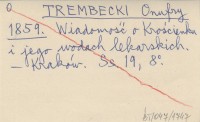 O TREMBECKI Onufry
1859. Wiadomość o Krościenku
i jego wodach lekarskich.
– Kraków. Ss 19, 8°.